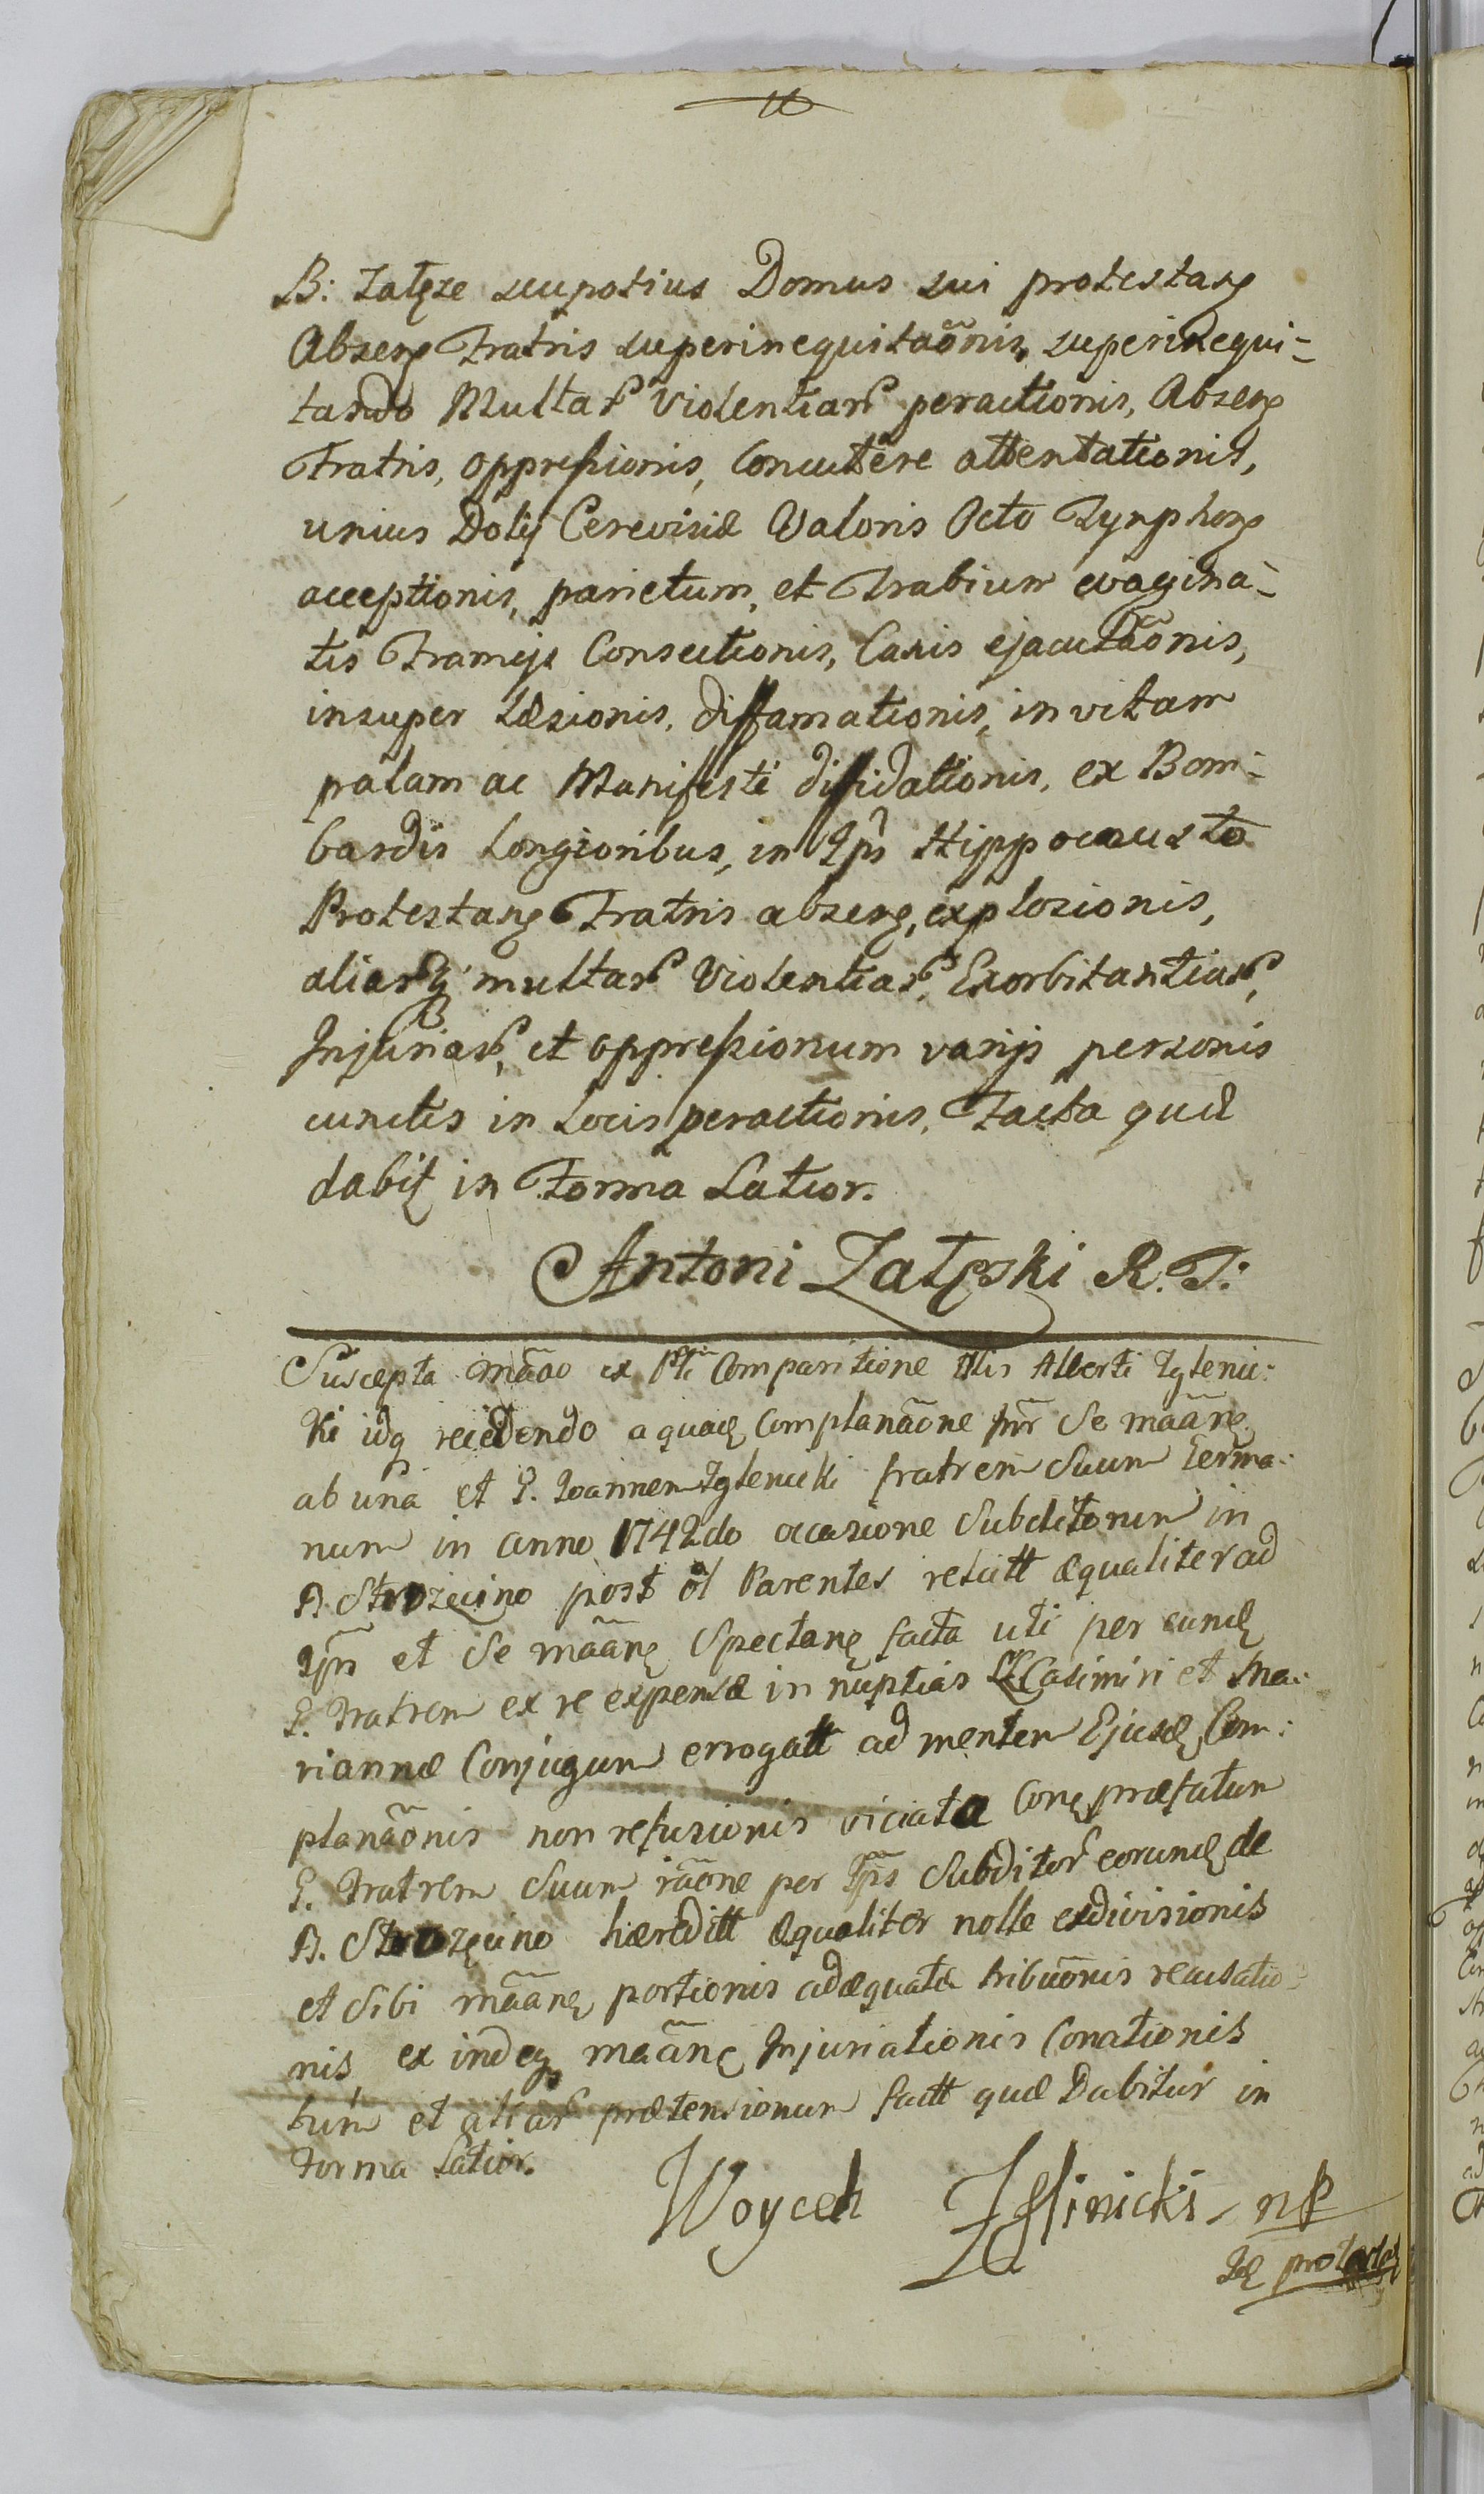 B: Załęze seupotius Domus sui protestanꝭ
Absenꝭ Fratris superinequitaõnis, superinequi-
tando Multar͂ Violentiar͂ peractionis, Absenꝭ
Fratris, oppressionis, Concutere attentationis,
unius Dolij Cerevisiæ Valoris Octo Tynphonꝭ
acceptionis, parietum, et Trabium evagina-
tis Frameijs Consectionis, Canis ejaculaõnis,
insuper Læsionis, diffamationis, in vitam
palam ac Manifeste diffidationis, ex Bom-
bardis Longioribus, in Ipõ Hippocausto
Protestanꝭ Fratris absenꝭ, explosionis,
aliarq́ multar͂ Violentiar͂, Exorbitantiar͂,
Injuriar͂, et oppressionum varijs personis
cunctis in Locis peractionis, Facta quæ
dabit͛ in Forma Latior.
Antoni Załęski R. T:
Suscepta mãõ ex Ptĩ Comparitione Nlis Alberti Zglenic:
ki idq recedendo a quavꝭ Complanãone inter Se mãanꝭ
ab una et G. Joannem Zglenicki fratrem Suum Germa:
num in anno 1742do occasione Subditorum in
B. Strozęcino post ol Parentes relictt æqualiter ad
Ipm et Se mãanꝭ Spectanꝭ facta uti per eundꝭ
G. Fratrem ex re expensæ in nuptias Casimiri et Ma:
riannæ Conjugum errogatt ad mentem Ejusdꝭ Com:
planãonis non refusionis viciata Conꝭ præfatum
G. Fratrem Suum rãone per Ipꝭ Subditor͂ eorundꝭ de
B. Strozęcino hæreditt æqualiter nolle exdivisionis
et Sibi mãanꝭ portionis adæquatæ tribuõnis recusatio:
nis ex indeqꝫ mãanꝭ Injuriationis Conationis
tum et aliar͂ prætensionum factt quæ Dabitur in
Forma Latior.
Woyceh Zglinicki mp